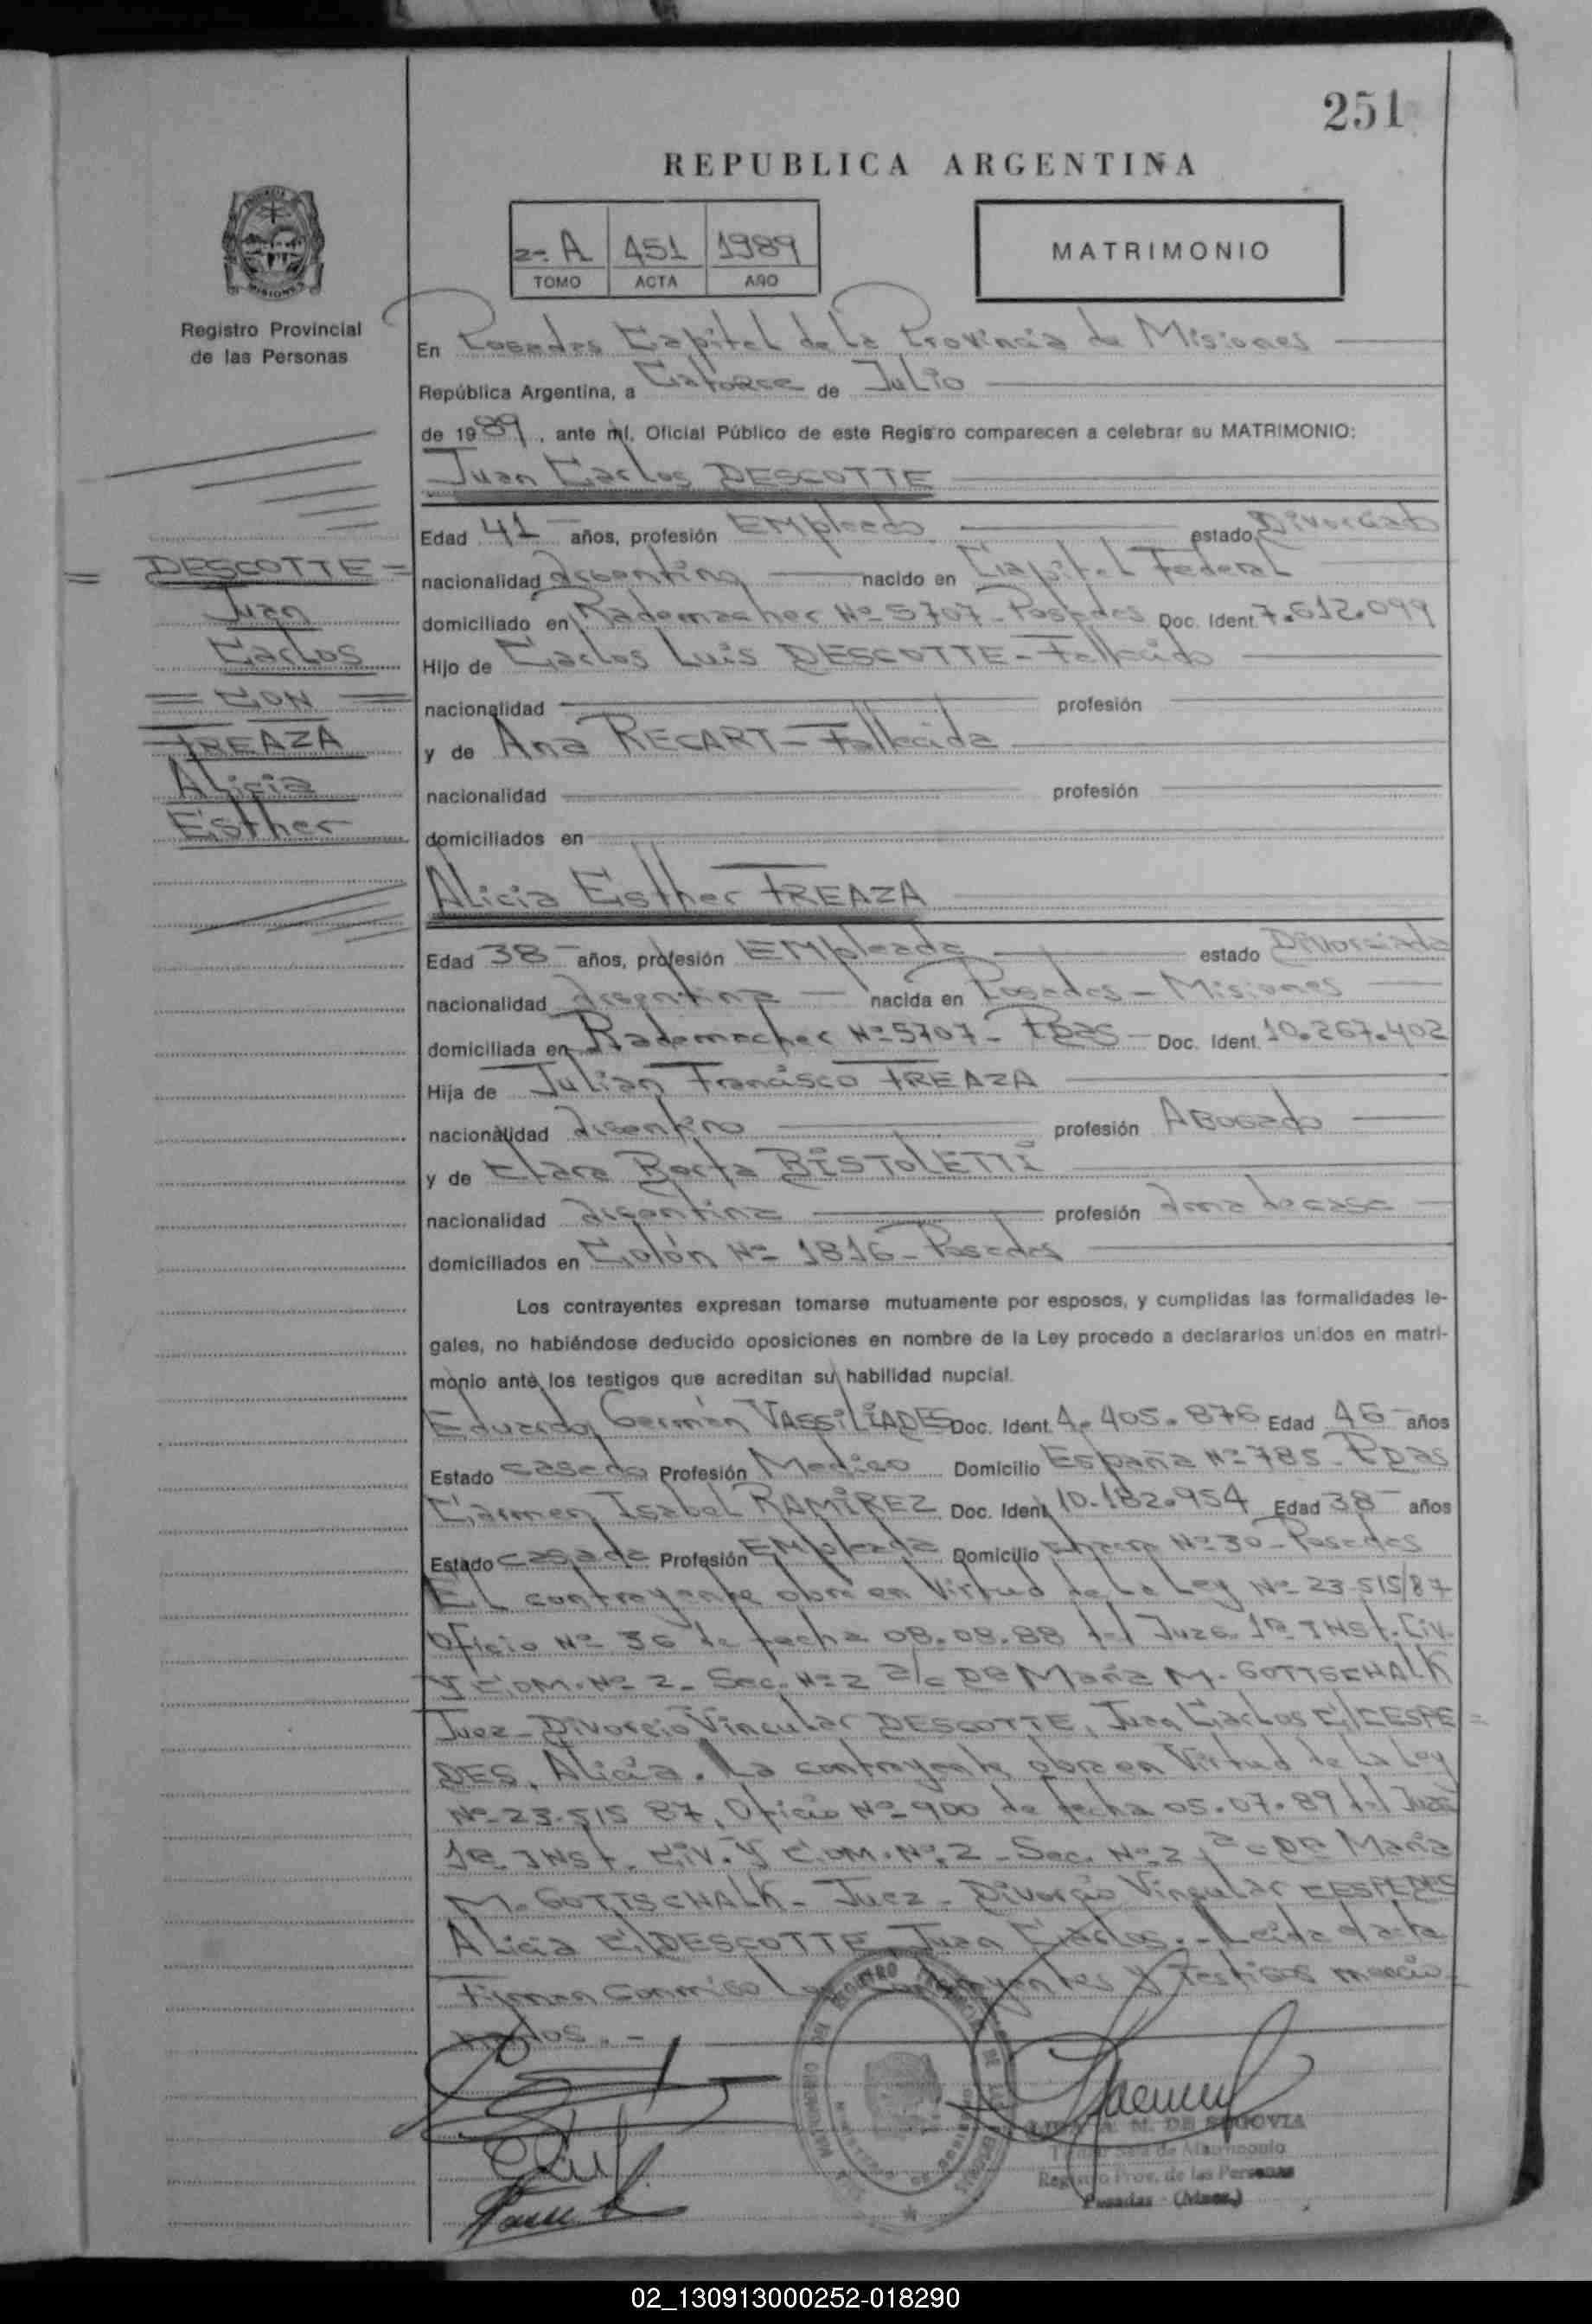 251
REPUBLICA ARGENTINA
2º A 451 1989
TOMO ACTA AÑO
MATRIMONIO
Registro Provincial
de las Personas
En Posadas Capital de la Provincia de Misiones
República Argentina, a Catorce de Julio
de 1989, ante mí, Oficial Público de este Registro comparecen a celebrar su MATRIMONIO:
Juan Carlos DESCOTTE
Edad 41 años, profesión Empleado estado Divorciado
nacionalidad argentino nacido en Capital Federal
domiciliado en Rademacher Nº 5707 - Posadas Doc. Ident. 7.612.099
Hijo de Carlos Luis DESCOTTE - Fallecido
nacionalidad profesión
y de Ana RECART - Fallecida
nacionalidad profesión
domiciliados en
= DESCOTTE =
Juan
Carlos
= CON =
FREAZA
Alicia
Esther
Alicia Esther FREAZA
Edad 38 años, profesión Empleada estado Divorciada
nacionalidad argentina nacida en Posadas - Misiones
domiciliada en Rademacher Nº 5707 - Pdas - Doc. Ident. 10.267.402
Hija de Julian Francisco FREAZA
nacionalidad argentino profesión Abogado
y de Clara Berta BISTOLETTI
nacionalidad argentina profesión ama de casa
domiciliados en Colón Nº 1816 - Posadas
Los contrayentes expresan tomarse mutuamente por esposos, y cumplidas las formalidades le-
gales, no habiéndose deducido oposiciones en nombre de la Ley procedo a declararlos unidos en matri-
monio ante los testigos que acreditan su habilidad nupcial.
Eduardo Germán VASSILIADES Doc. Ident. 4.405.876 Edad 46 años
Estado casado Profesión Medico Domicilio España Nº 785 - Pdas
Carmen Isabel RAMIREZ Doc. Ident. 10.182.954 Edad 38 años
Estado casada Profesión Empleada Domicilio Nº 30 - Posadas
El contrayente obra en Virtud de La Ley Nº 23.515/87
Oficio Nº 36 de fecha 08.08.88 del Juzg. 1ª INst. Civ.
Y COM. Nº 2 - Sec. Nº 2 a/c DRa Maria M. GOTTSCHALK
Juez - Divorcio Vincular DESCOTTE, Juan Carlos C/CESPE=
DES, Alicia. La contrayente obra en Virtud de La Ley
Nº 23.515 87, Oficio Nº 900 de fecha 05.07.89 del Juzg
1ª INst. CIV. Y COM. Nº 2 - Sec. Nº 2 a c DRa Maria
M. GOTTSCHALK - Juez - Divorcio Vincular CESPEDES
Alicia C/DESCOTTE Juan Carlos. - Leida el acta
Firman conmigo Los Contrayentes y testigos mencio-
nados. -
M. DE SEGOVIA
Sala de Matrimonio
Registro Prov. de las Personas
Posadas (Mnes.)
02_130913000252-018290